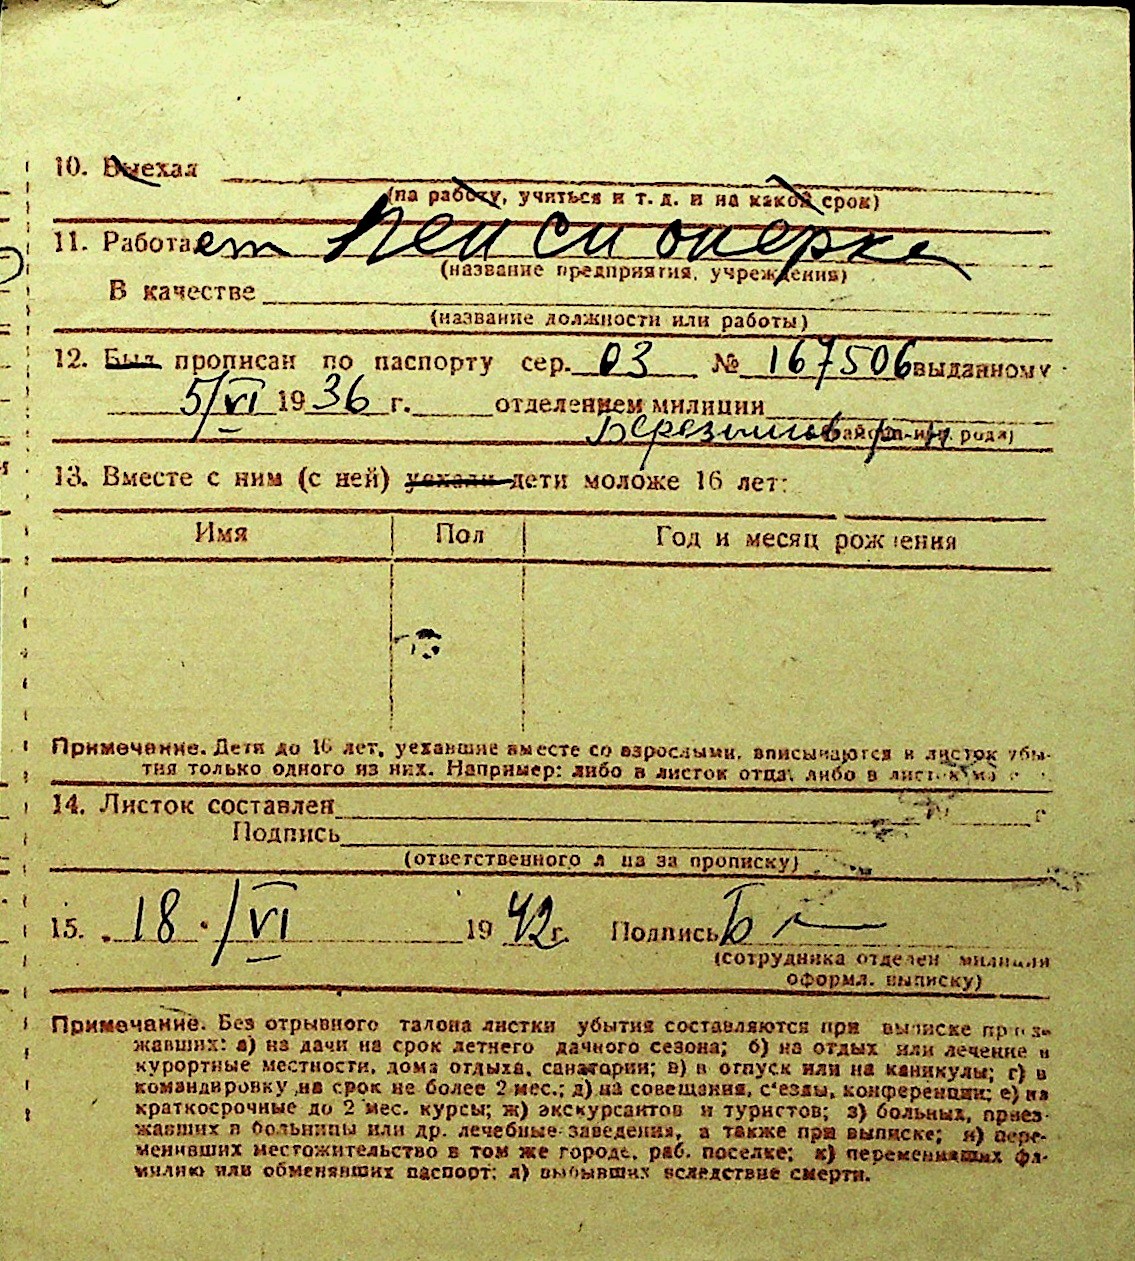 10. Выехал
(на работу, учиться и т. д. и на какой срок)
11. Работает Пенсионерка
(название предприятия, учреждения)
В качестве
(название должности или работы)
12. Был прописан по паспорту сер. 03 № 167506 выданному
5/VI 1936 г. отделением милиции
р-н
13. Вместе с ним (с ней) уехали дети моложе 16 лет:
Имя Пол Год и месяц рождения
Примечание. Дети до 16 лет, уехавшие вместе со взрослыми, вписываются в листок убы-
тия только одного из них. Например: либо в листок отца, либо в листок
14. Листок составлен г
Подпись
(ответственного лица за прописку)
15. 18 / VI 1942 г. Подпись
(сотрудника отделен милиции
оформл. выписку)
Примечание. Без отрывного талона листки убытия составляются при выписке приез-
жавших: а) на дачи на срок летнего дачного сезона; б) на отдых или лечение в
курортные местности, дома отдыха, санатории; в) в отпуск или на каникулы; г) в
командировку на срок не более 2 мес.; д) на совещания, с'езды, конференции; е) на
краткосрочные до 2 мес. курсы; ж) экскурсантов и туристов; з) больных, приез-
жавших в больницы или др. лечебные заведения, а также при выписке; и) пере-
менивших местожительство в том же городе, раб. поселке; к) переменивших фа-
милию или обменявших паспорт; л) выбывших вследствие смерти.